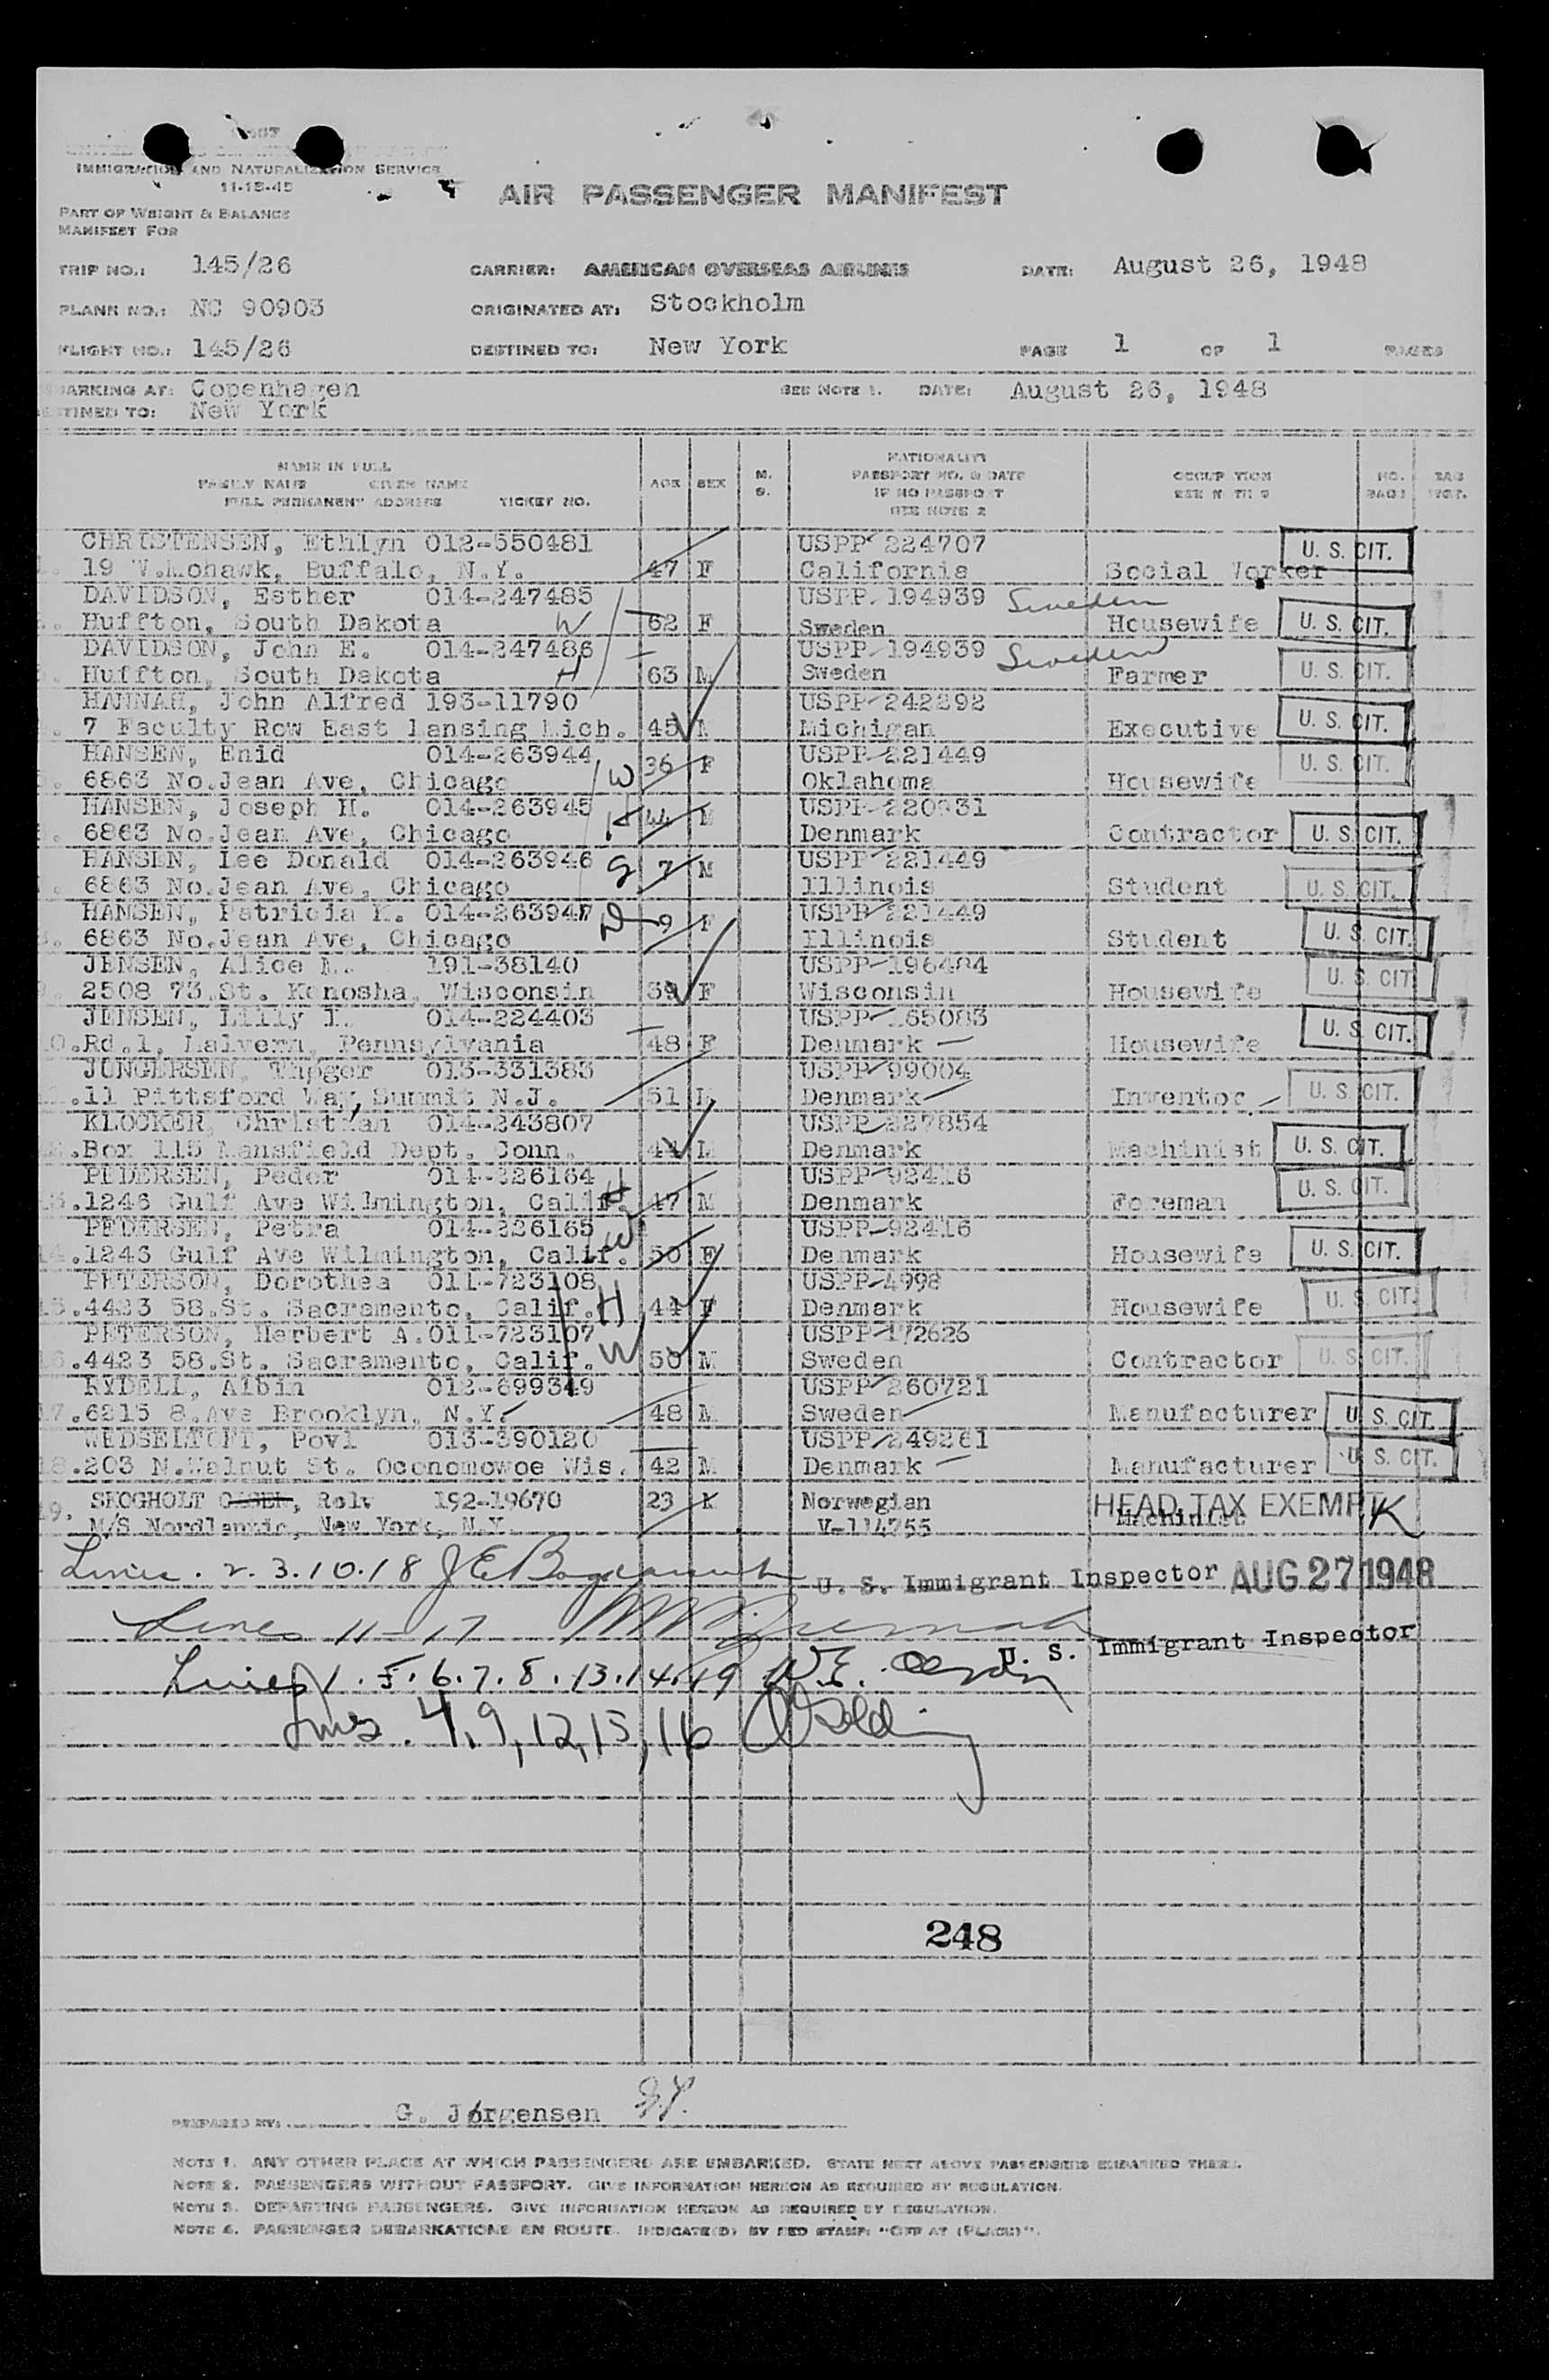 IMMIGRATION AND NATURALIZATION SERVICE
11-15-45
AIR PASSENGER MANIFEST
PART OF WEIGHT & BALANCE
MANIFEST FOR
TRIP NO.: 145/26 CARRIER: AMERICAN OVERSEAS AIRLINES DATE: August 26, 1948
PLANE NO.: NC 90903 ORIGINATED AT: Stockholm
FLIGHT NO.: 145/26 DESTINED TO: New York PAGE 1 OF 1 PAGES
BARKING AT: Copenhagen SEE NOTE 1. DATE: August 26, 1948
TINED TO: New York
NAME IN FULL
FAMILY NAME GIVEN NAME
FULL PERMANENT ADDRESS TICKET NO. AGE SEX M. S. NATIONALITY PASSPORT NO. & DATE IF NO PASSPORT SEE NOTE 2 OCCUPATION SEE NOTE 3 NO. BAGS BAG WGT.
CHRISTENSEN, Ethlyn 012-550481 USPP 224707 U. S. CIT.
19 W.Mohawk, Buffalo, N.Y. 47 F California Social Worker
DAVIDSON, Esther 014-247485 USPP 194939 Sweden
Huffton, South Dakota W 62 F Sweden Housewife U. S. CIT.
DAVIDSON, John E. 014-247486 USPP 194939 Sweden
Huffton, South Dakota H 63 M Sweden Farmer U. S. CIT.
HANNAH, John Alfred 193-11790 USPP 242292
7 Faculty Row East Lansing Mich. 45 M Michigan Executive U. S. CIT.
HANSEN, Enid 014-263944 USPP 221449
6863 No.Jean Ave, Chicago W 36 F Oklahoma Housewife U. S. CIT.
HANSEN, Joseph H. 014-263945 USPP 220931
6863 No.Jean Ave, Chicago H 44 M Denmark Contractor U. S. CIT.
HANSEN, Lee Donald 014-263946 USPP 221449
6863 No.Jean Ave, Chicago S 7 M Illinois Student U. S. CIT.
HANSEN, Patricia K. 014-263947 USPP 221449
6863 No.Jean Ave, Chicago D 9 F Illinois Student U. S. CIT.
JENSEN, Alice M. 191-38140 USPP 196484
2508 73.St. Kenosha, Wisconsin 39 F Wisconsin Housewife U. S. CIT.
JENSEN, Lilly T. 014-224403 USPP 165083
10. Rd.1, Malvern, Pennsylvania 48 F Denmark Housewife U. S. CIT.
JUNGERSEN, Thoger 013-331383 USPP 99004
11 Pittsford Way, Summit N.J. 51 M Denmark Inventor U. S. CIT.
KLOCKER, Christian 014-243807 USPP 227854
Box 115 Mansfield Dept. Conn. 44 M Denmark Machinist U. S. CIT.
PEDERSEN, Peder 014-226164 USPP 92416
13. 1246 Gulf Ave Wilmington, Calif. H 47 M Denmark Foreman U. S. CIT.
PEDERSEN, Petra 014-226165 USPP 92416
14. 1246 Gulf Ave Wilmington, Calif. W 50 F Denmark Housewife U. S. CIT.
PETERSON, Dorothea 011-723108 USPP 4998
15. 4423 58.St. Sacramento, Calif. H 44 F Denmark Housewife U. S. CIT.
PETERSON, Herbert A. 011-723107 USPP 172623
16. 4423 58.St. Sacramento, Calif. W 50 M Sweden Contractor U. S. CIT.
RYDELL, Albin 012-699349 USPP 260721
17. 6215 8.Ave Brooklyn, N.Y. 48 M Sweden Manufacturer U. S. CIT.
WEDSELTOFT, Povl 013-390120 USPP 249261
18. 203 N.Walnut St. Oconomowoc Wis. 42 M Denmark Manufacturer U. S. CIT.
19. SKOGHOLT OLSEN, Rolv 192-19670 23 M Norwegian HEAD TAX EXEMPT K
M/S Nordlannic, New York, N.Y. V-114755 Machinist
Lines. 2. 3. 10. 18 U. S. Immigrant Inspector AUG 27 1948
Lines 11-17 U. S. Immigrant Inspector
Lines 1. 5. 6. 7. 8. 13. 14. 19
Lines. 4, 9, 12, 15, 16
248
PREPARED BY: G. Jørgensen
NOTE 1. ANY OTHER PLACE AT WHICH PASSENGERS ARE EMBARKED. STATE NEXT ABOVE PASSENGERS EMBARKED THERE.
NOTE 2. PASSENGERS WITHOUT PASSPORT. GIVE INFORMATION HEREON AS REQUIRED BY REGULATION.
NOTE 3. DEPARTING PASSENGERS. GIVE INFORMATION HEREON AS REQUIRED BY REGULATION.
NOTE 4. PASSENGER DEBARKATIONS EN ROUTE. INDICATE(D) BY RED STAMP: "OFF AT (PLACE)".